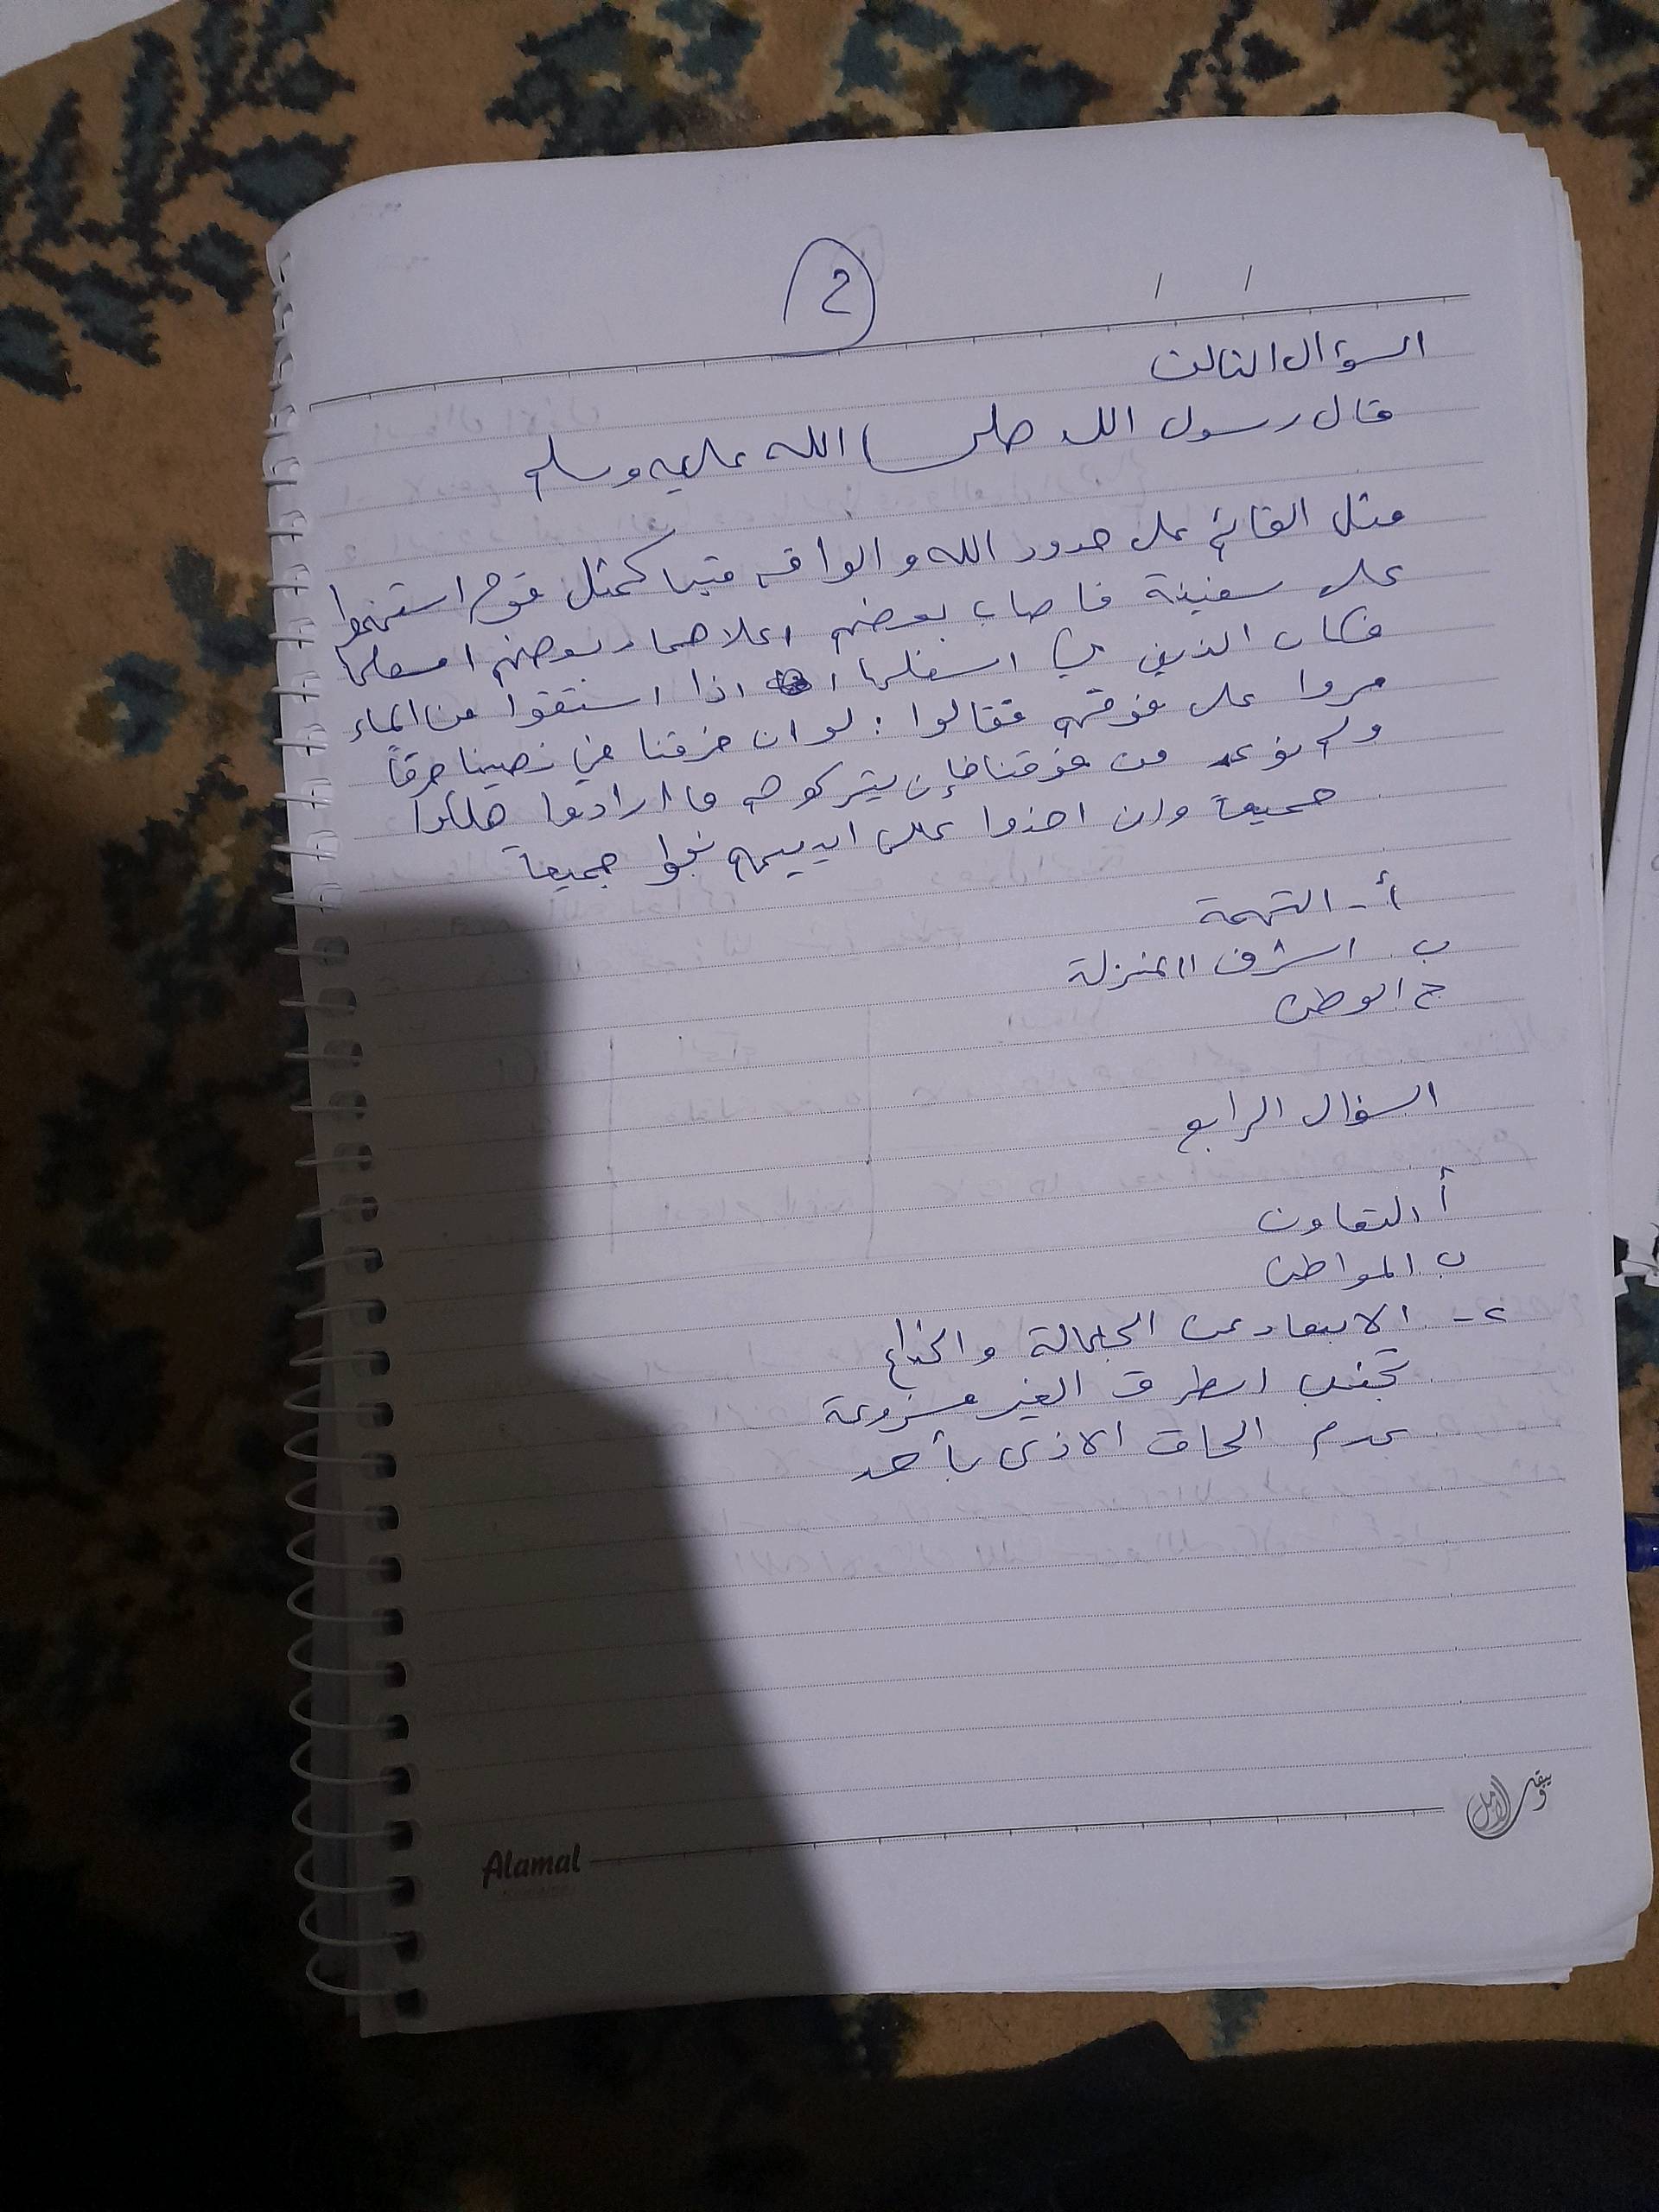 2
السؤال الثالث
قال رسول الله صلى الله عليه وسلم
مثل القائم على حدود الله والواقع فيها كمثل قوم استهموا
على سفينة فاصاب بعضهم اعلاها وبعضهم اسفلها
فكان الذين في اسفلها اذا استقوا من الماء
مروا على فوقهم فقالوا : لو ان خرقنا في نصيبنا خرقاً
ولم نؤذ من فوقنا فإن يتركوهم ما ارادوا هلكوا
جميعاً وان اخذوا على ايديهم نجوا جميعاً
أ - التهمة
ب. اشرف المنزلة
ج الوطن
السؤال الرابع
أ التعاون
ب المواطن
2- الابتعاد عن الجهالة والخداع
تجنب الطرق الغير مشروعة
عدم الحاق الاذى بأحد
ويبقى الأمل
Alamal